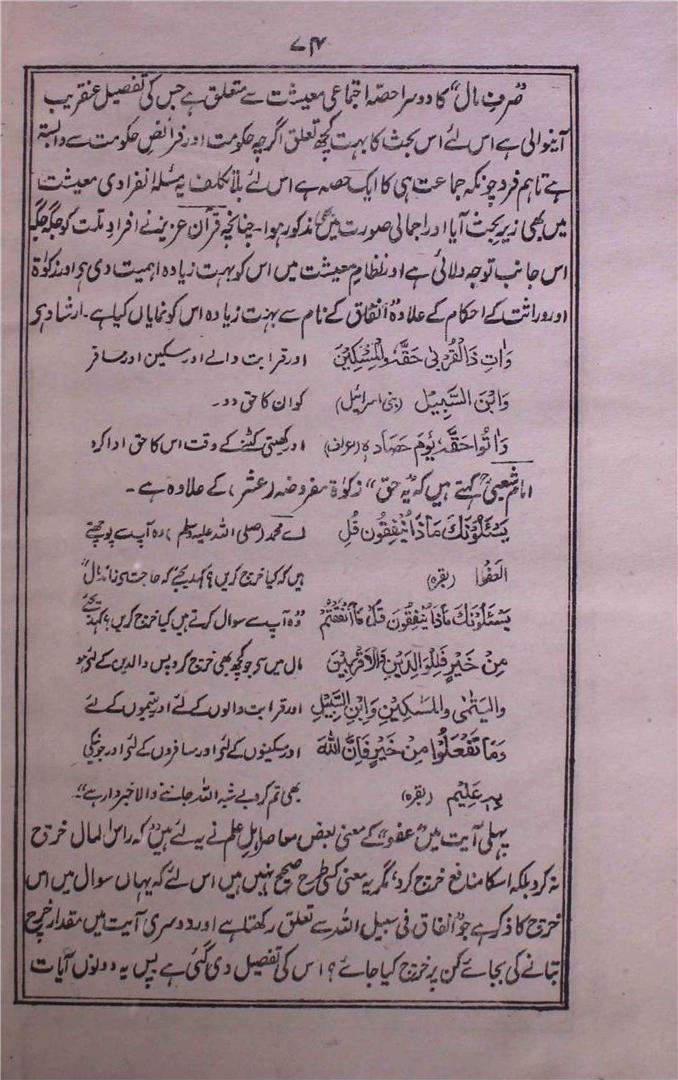 ۷۴
"صرفِ مال" کا دوسرا حصہ اجتماعی معیشت سے متعلق ہے جس کی تفصیل عنقریب
آنیوالی ہے اس لئے اس بحث کا بہت کچھ تعلق اگرچہ حکومت اور فرائضِ حکومت سے وابستہ
ہے تاہم فرد چونکہ جماعت ہی کا ایک حصہ ہے اس لئے بلا تکلف یہ مسئلہ انفرادی معیشت
میں بھی زیرِ بحث آیا اور اجمالی صورت میں مذکور ہوا۔ چنانچہ قرآن عزیز نے افرادِ ملت کو جگہ جگہ
اس جانب توجہ دلائی ہے اور نظامِ معیشت میں اس کو بہت زیادہ اہمیت دی ہے اور زکوٰۃ
اور وراثت کے احکام کے علاوہ "انفاق" کے نام سے بہت زیادہ اس کو نمایاں کیا ہے۔ ارشاد ہے
وَاٰتِ ذَا الْقُرْبٰی حَقَّهٗ وَالْمِسْکِیْنَ اور قرابت والے اور مسکین اور مسافر
وَابْنَ السَّبِیْلِ (بنی اسرائیل) کو ان کا حق دو۔
وَاٰتُوْا حَقَّهٗ یَوْمَ حَصَادِہٖ (اعراف) اور کھیتی کٹنے کے وقت اس کا حق ادا کرو
امام شعبیؒ کہتے ہیں کہ یہ "حق" زکوٰۃ مفروضہ (عشر) کے علاوہ ہے۔
یَسْئَلُوْنَكَ مَاذَا یُنْفِقُوْنَ قُلِ اے محمد (صلی اللہ علیہ وسلم) وہ آپ سے پوچھتے
الْعَفْوَا (بقرہ) ہیں کہ کیا خرچ کریں؟ کہدیجئے کہ حاجت سے زائد مال"
یَسْئَلُوْنَكَ مَاذَا یُنْفِقُوْنَ قُلْ مَا اَنْفَقْتُمْ "وہ آپ سے سوال کرتے ہیں کیا خرچ کریں؟ کہدیجئے
مِنْ خَیْرٍ فَلِلْوَالِدَیْنِ وَالْاَقْرَبِیْنَ مال میں سے جو کچھ بھی خرچ کرو پس والدین کے لئے ہو
وَالْیَتٰمٰی وَالْمَسٰکِیْنِ وَابْنِ السَّبِیْلِ اور قرابت والوں کے لئے اور یتیموں کے لئے
وَمَا تَفْعَلُوْا مِنْ خَیْرٍ فَاِنَّ اللهَ اور مسکینوں کے لئے اور مسافروں کے لئے اور جو نیکی
بِهٖ عَلِیْمٌ (بقرہ) بھی تم کرو بے شبہ اللہ جاننے والا خبردار ہے"۔
پہلی آیت میں "عفو" کے معنی بعض معاصر اہلِ علم نے یہ لئے ہیں کہ "راس المال خرچ
نہ کرو بلکہ اسکا منافع خرچ کرو" مگر یہ معنی کسی طرح صحیح نہیں ہیں اس لئے کہ یہاں سوال میں اس
خرچ کا ذکر ہے جو "انفاق فی سبیل اللہ" سے تعلق رکھتا ہے اور دوسری آیت میں مقدارِ خرچ
بتانے کی بجائے کن پر خرچ کیا جائے؟ اس کی تفصیل دی گئی ہے پس یہ دونوں آیات